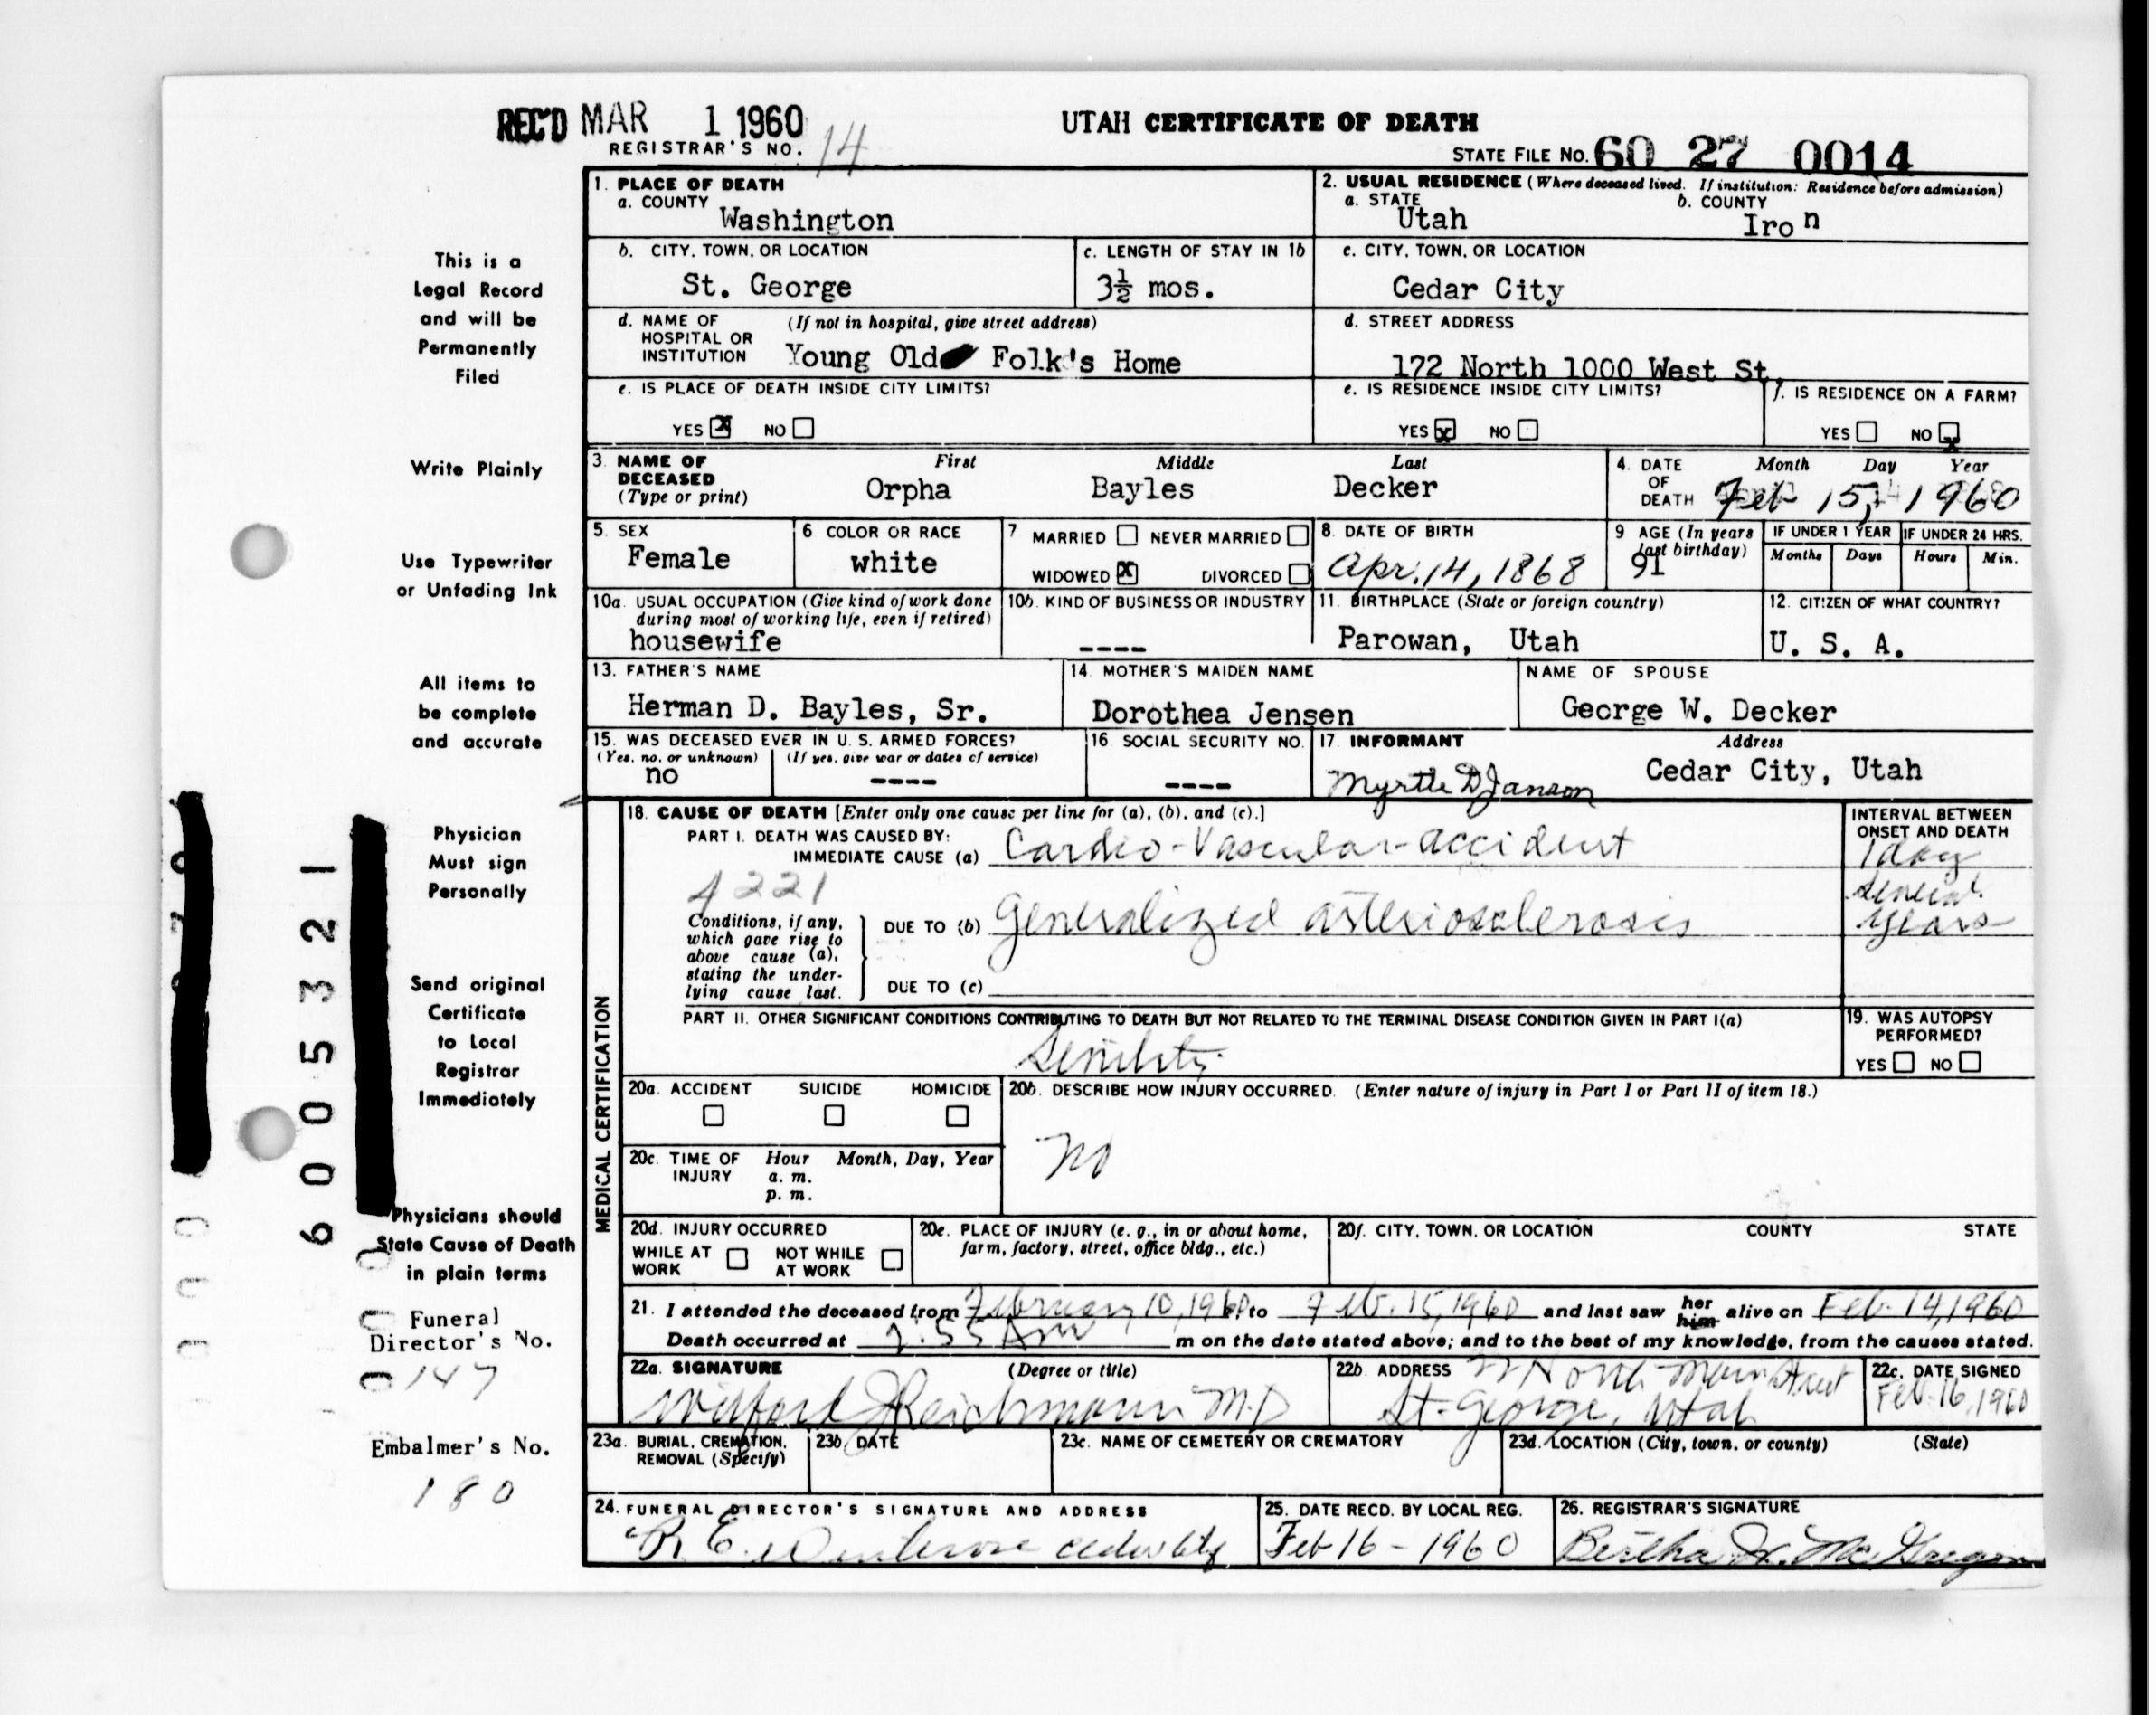 REC'D MAR 1 1960
UTAH CERTIFICATE OF DEATH
REGISTRAR'S NO. 14
STATE FILE NO. 60 27 0014
1. PLACE OF DEATH
a. COUNTY
Washington
2. USUAL RESIDENCE (Where deceased lived. If institution: Residence before admission)
a. STATE
Utah
b. COUNTY
Iron
b. CITY, TOWN, OR LOCATION
St. George
c. LENGTH OF STAY IN 1b
3½ mos.
c. CITY, TOWN, OR LOCATION
Cedar City
d. NAME OF HOSPITAL OR INSTITUTION
(If not in hospital, give street address)
Young Old Folk's Home
d. STREET ADDRESS
172 North 1000 West St.
e. IS PLACE OF DEATH INSIDE CITY LIMITS?
YES x NO
e. IS RESIDENCE INSIDE CITY LIMITS?
YES x NO
f. IS RESIDENCE ON A FARM?
YES NO x
3. NAME OF DECEASED
(Type or print)
First Middle Last
Orpha Bayles Decker
4. DATE OF DEATH
Month Day Year
Feb 15, 1960
5. SEX
Female
6 COLOR OR RACE
white
7 MARRIED NEVER MARRIED
WIDOWED x DIVORCED
8. DATE OF BIRTH
Apr. 14, 1868
9 AGE (In years last birthday)
91
IF UNDER 1 YEAR
Months Days
IF UNDER 24 HRS.
Hours Min.
10a. USUAL OCCUPATION (Give kind of work done during most of working life, even if retired)
housewife
10b. KIND OF BUSINESS OR INDUSTRY
----
11. BIRTHPLACE (State or foreign country)
Parowan, Utah
12. CITIZEN OF WHAT COUNTRY?
U. S. A.
13. FATHER'S NAME
Herman D. Bayles, Sr.
14. MOTHER'S MAIDEN NAME
Dorothea Jensen
NAME OF SPOUSE
George W. Decker
15. WAS DECEASED EVER IN U. S. ARMED FORCES?
(Yes, no, or unknown) (If yes, give war or dates of service)
no ----
16. SOCIAL SECURITY NO.
----
17. INFORMANT Address
Myrtle D Janson Cedar City, Utah
MEDICAL CERTIFICATION
18. CAUSE OF DEATH [Enter only one cause per line for (a), (b), and (c).]
INTERVAL BETWEEN ONSET AND DEATH
PART I. DEATH WAS CAUSED BY:
IMMEDIATE CAUSE (a) Cardio-Vascular-accident
1 day
4221
Conditions, if any, which gave rise to above cause (a), stating the underlying cause last.
DUE TO (b) Generalized arteriosclerosis
several years
DUE TO (c)
PART II. OTHER SIGNIFICANT CONDITIONS CONTRIBUTING TO DEATH BUT NOT RELATED TO THE TERMINAL DISEASE CONDITION GIVEN IN PART I(a)
Senility
19. WAS AUTOPSY PERFORMED?
YES NO
20a. ACCIDENT SUICIDE HOMICIDE
20b. DESCRIBE HOW INJURY OCCURRED. (Enter nature of injury in Part I or Part II of item 18.)
no
20c. TIME OF INJURY
Hour Month, Day, Year
a. m.
p. m.
20d. INJURY OCCURRED
WHILE AT WORK NOT WHILE AT WORK
20e. PLACE OF INJURY (e. g., in or about home, farm, factory, street, office bldg., etc.)
20f. CITY, TOWN, OR LOCATION COUNTY STATE
21. I attended the deceased from February 10, 1960, to Feb. 15, 1960 and last saw her him alive on Feb. 14, 1960
Death occurred at :55 Am m on the date stated above; and to the best of my knowledge, from the causes stated.
22a. SIGNATURE (Degree or title)
Wilford J Reichmann M.D
22b. ADDRESS
North Main Street
St. George, Utah
22c. DATE SIGNED
Feb. 16, 1960
23a. BURIAL, CREMATION, REMOVAL (Specify)
23b. DATE
23c. NAME OF CEMETERY OR CREMATORY
23d. LOCATION (City, town, or county) (State)
24. FUNERAL DIRECTOR'S SIGNATURE AND ADDRESS
R. E. Cedar City
25. DATE RECD. BY LOCAL REG.
Feb 16 - 1960
26. REGISTRAR'S SIGNATURE
Bertha McGregor
This is a
Legal Record
and will be
Permanently
Filed
Write Plainly
Use Typewriter
or Unfading Ink
All items to
be complete
and accurate
Physician
Must sign
Personally
Send original
Certificate
to Local
Registrar
Immediately
Physicians should
State Cause of Death
in plain terms
Funeral
Director's No.
147
Embalmer's No.
180
6005321